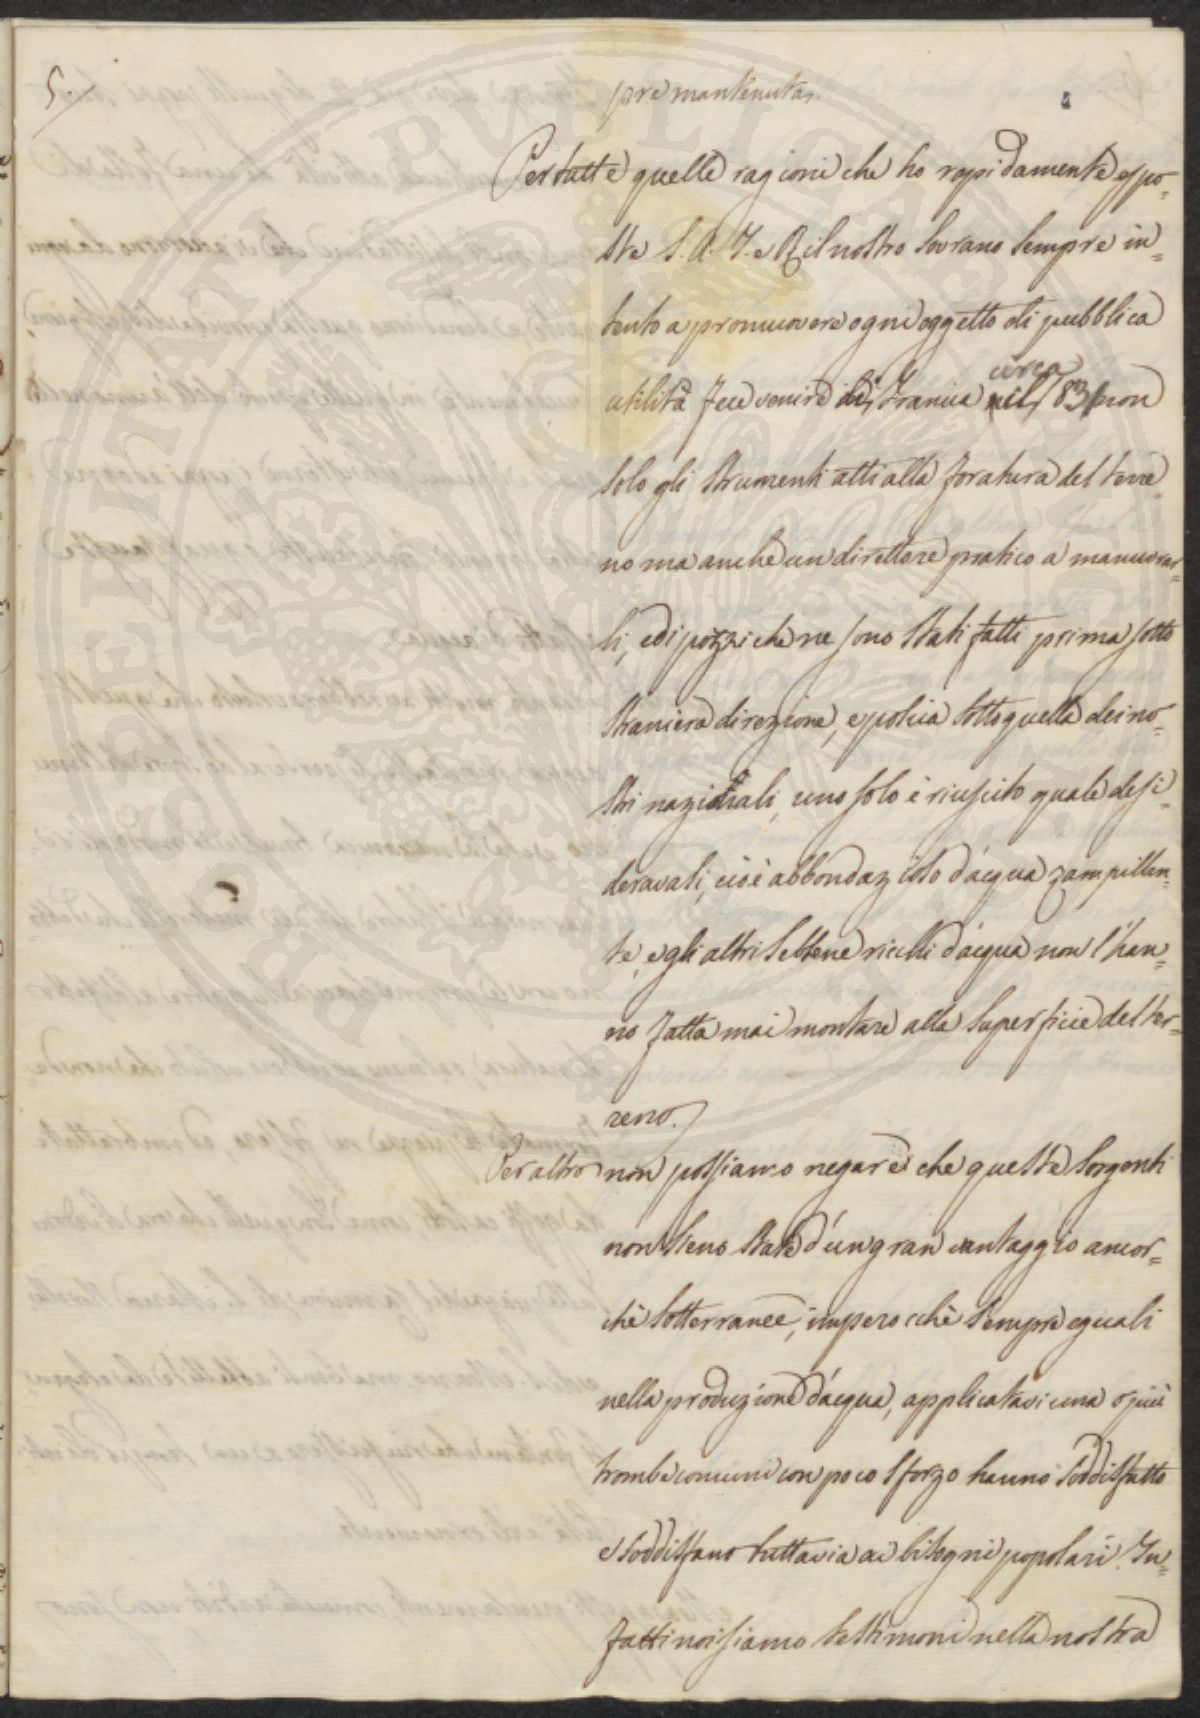 5.
pre mantenuta.
Per tutte quelle ragioni che ho rapidamente espo=
ste S. A. I. e R il nostro Sovrano sempre in=
tento a promuovere ogni oggetto di pubblica
circa
utilità fece venire di Francia il 1831 non
solo gli strumenti atti alla foratura del terre=
no ma anche un direttore pratico a manuvrar=
li, ed i pozzi che ne sono stati fatti prima sotto
straniera direzione, e poscia sotto quella dei no=
stri nazionali, uno solo è riuscito quale desi=
deravasi, cioè abbondazioso d'acqua zampillan=
te, e gli altri sebbene ricchi d'acqua non l'han=
no fatta mai montare alla superficie del ter=
reno.
Per altro non possiamo negare che queste sorgenti
non sieno state d'un gran vantaggio ancor=
chè sotterranee, imperocchè sempre eguali
nella produzione d'acqua, applicatavi una o più
trombe comuni con poco sforzo hanno soddisfatto
e soddisfano tuttavia ai bisogni popolari. In=
fatti noi siamo testimoni nella nostra
PUBLICAE